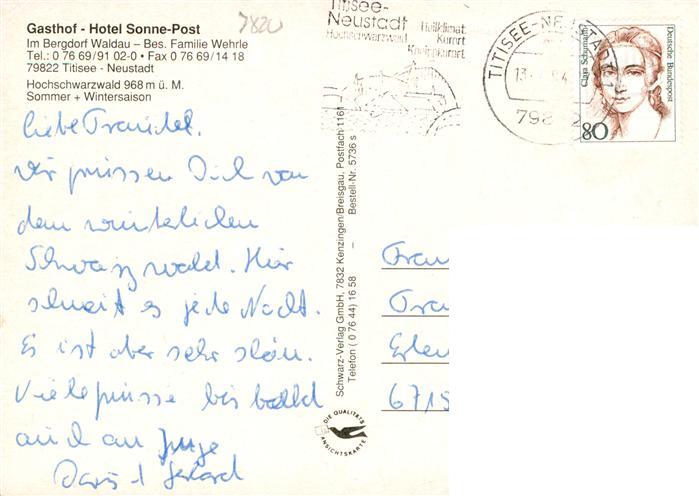 Gasthof - Hotel Sonne-Post
Im Bergdorf Waldau – Bes. Familie Wehrle
Tel.: 0 76 69/91 02-0 • Fax 0 76 69/14 18
79822 Titisee - Neustadt
Hochschwarzwald 968 m ü. M.
Sommer + Wintersaison
7820
Titisee-
Neustadt
Hochschwarzwald
Heilklimat.
Kurort
Kneippkurort
TITISEE-NEUSTADT
13
798 2
Clara Schumann
Deutsche Bundespost
80
liebe Traudel.
wir grüssen Dich von
dem winterlichen
Schwarzwald. Hier
schneit es jede Nacht.
Es ist aber sehr schön.
Viele grüsse bis bald
auch an
Doris + Gerhard
Schwarz-Verlag GmbH, 7832 Kenzingen/Breisgau, Postfach 1161
Telefon (0 76 44) 16 58 – Bestell-Nr. 5736 s
DIE QUALITÄTS
ANSICHTSKARTE
Frau
Tra
Erlen
6715